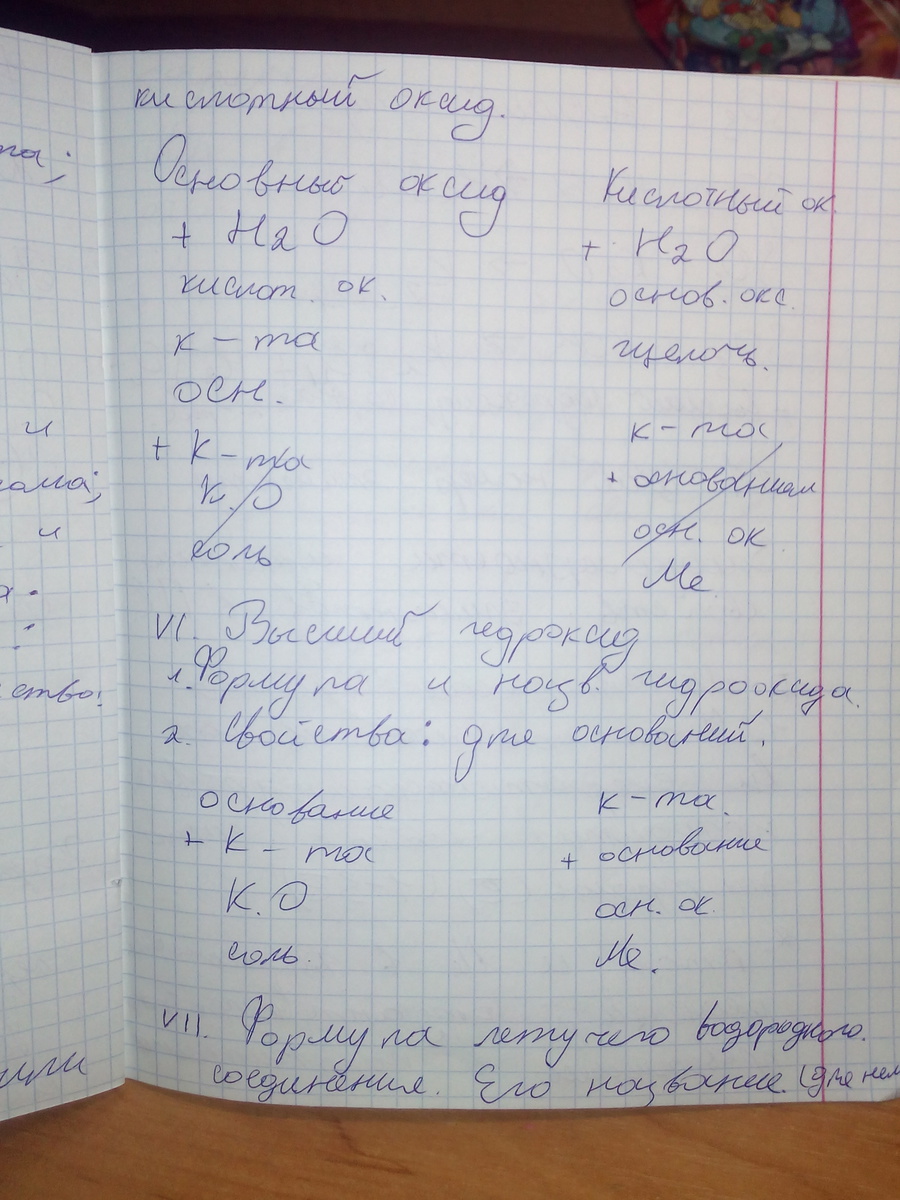 кислотный оксид.
Основный оксид
+ H2O
кислот. ок.
к-та
осн.
+ к-та
К.О
соль
Кислотный ок
+ H2O
основ. окс.
щелочь.
к-та
+ основанием
осн. ок
Ме
VI. Высший гидроксид
1. Формула и назв. гидрооксида.
2. Свойства: для оснований.
основание
+ к-та
К.О
соль.
к-та.
+ основание
осн. ок.
Ме.
VII. Формула летучего водородного.
соединения. Его название. (для нем
та;
и
и
ство:
или